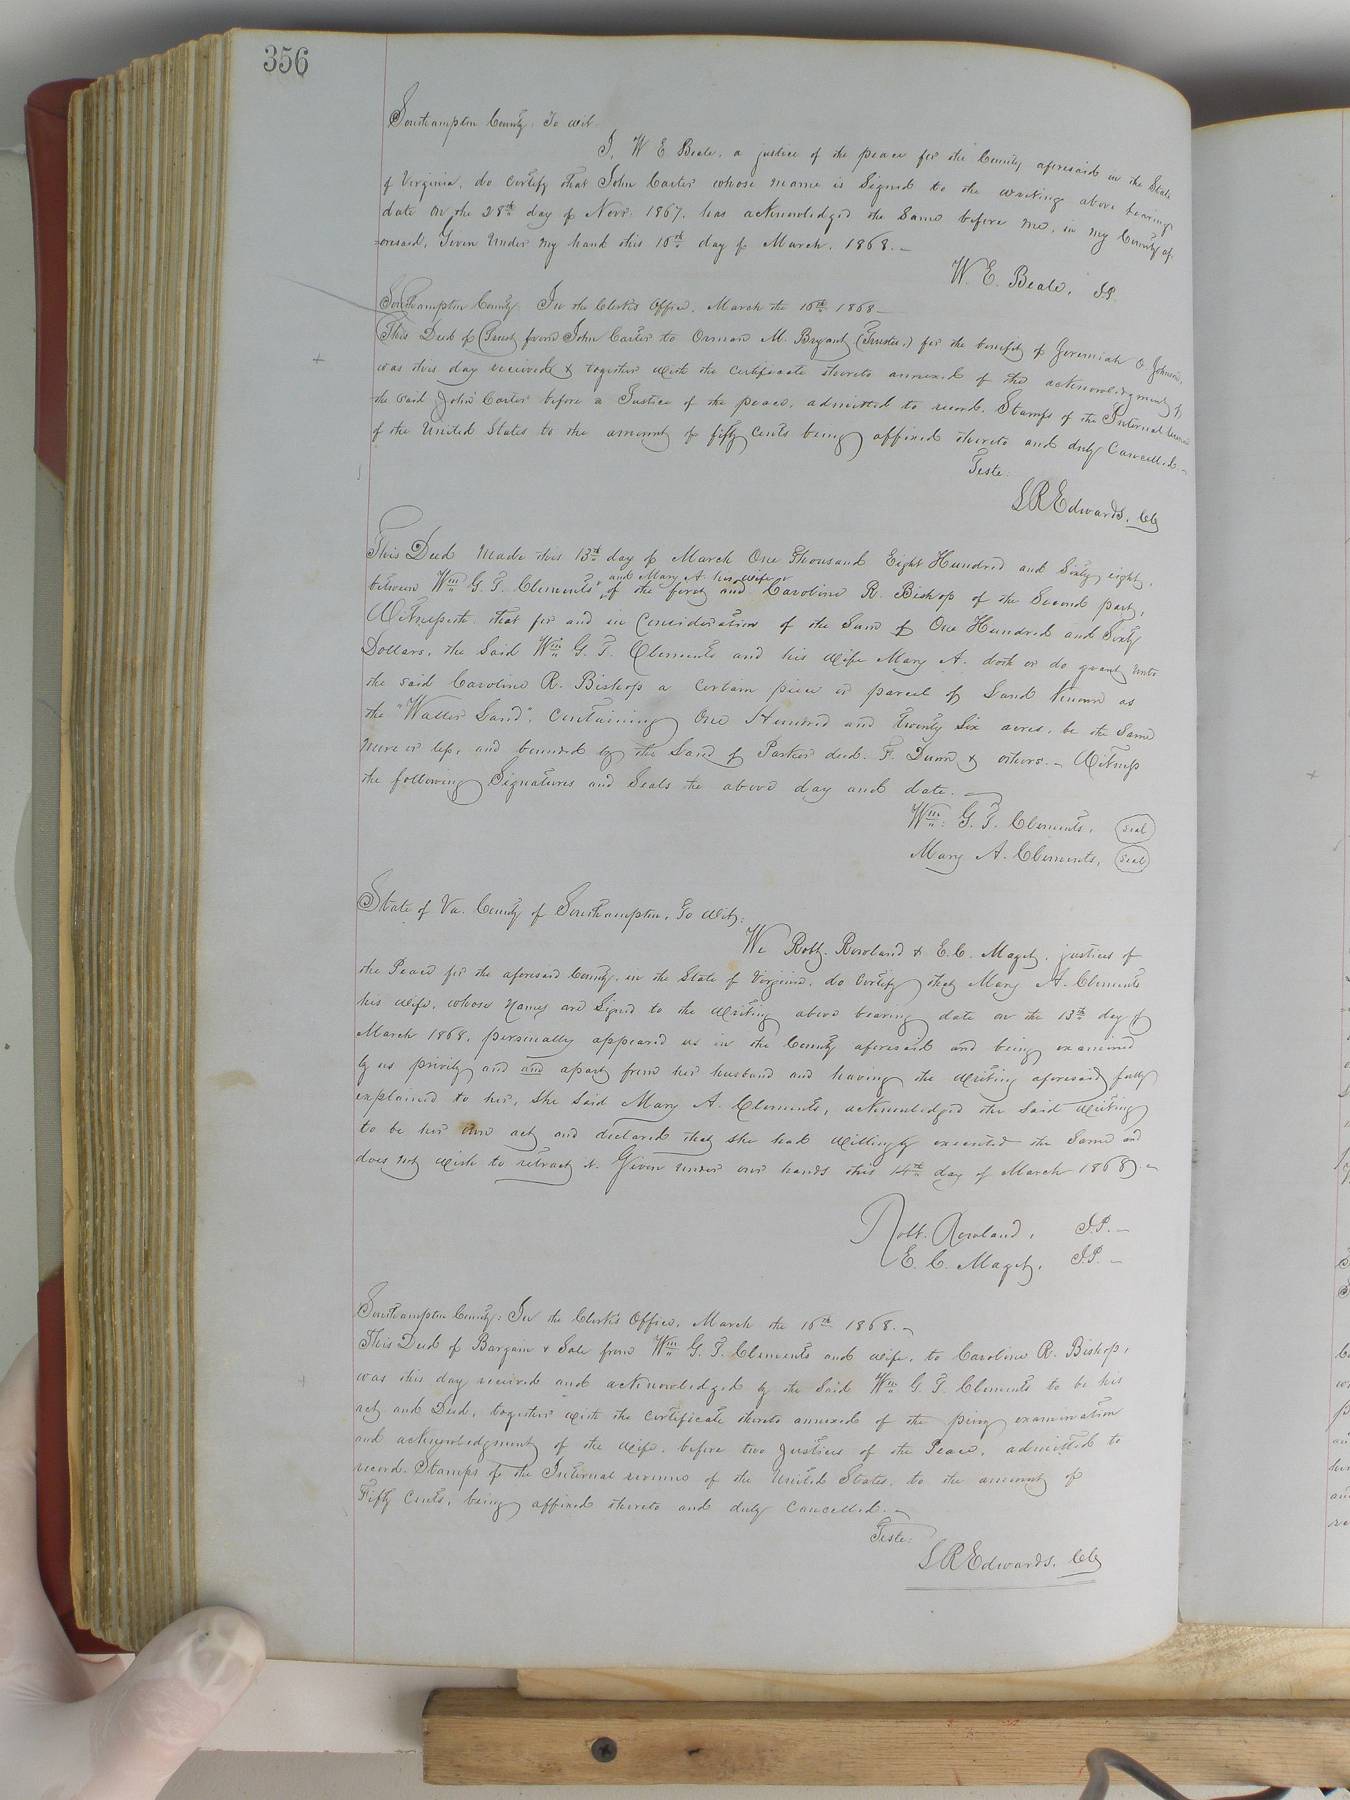 356
Southampton County, To wit.
I, W E Beale, a justice of the peace for the County aforesaid in the State
of Virginia, do certify that John Carter whose name is Signed to the writing above bearing
date on the 28th day of Novr. 1867, has acknowledged the Same before me, in my County af-
oresaid, Given Under my hand this 16th day of March, 1868.—
W. E. Beale, J.P.
Southampton County, In the Clerk's Office, March the 16th 1868—
This Deed of Trust from John Carter to Orman M. Bryant (Trustee,) for the benefit of Jeremiah Johnson,
was this day received & together with the certificate thereto annexed of the acknowledgment of
the said John Carter before a Justice of the peace, admitted to record. Stamps of the Internal Revenue
of the United States to the amount of fifty cents being affixed thereto and duly Cancelled.—
Teste:
L R Edwards, Clk
This Deed Made this 13th day of March One Thousand Eight Hundred and Sixty eight,
and Mary A. his wife
between Wm G. T. Clements, of the first and Caroline R. Bishop of the Second part,
Witnesseth, that for and in Consideration of the Sum of One Hundred and Sixty
Dollars, the Said Wm G. T. Clements and his wife Mary A. doth or do grant unto
the said Caroline R. Bishop a certain piece or parcel of Land Known as
the "Waller Land", Containing One Hundred and twenty Six acres, be the Same
more or less, and bounded by the Land of Parker decd. F. Dunn & others.— Witness
the following Signatures and Seals the above day and date.—
Wm: G. T. Clements, seal
Mary A. Clements, seal
State of Va. County of Southampton, To Wit:
We Robt. Rowland & E. C. Maget, justices of
the Peace for the aforesaid County, in the State of Virginia, do certify that Mary A. Clements
his wife, whose Names are Signed to the writing above bearing date on the 13th day of
March 1868, personally appeared us in the County aforesaid and being examined
by us privily and and apart from her husband and having the writing aforesaid fully
explained to her, She Said Mary A. Clements, acknowledged the Said writing
to be her own act and declared that she had willingly executed the Same and
does not wish to retract it. Given under our hands this 14th day of March 1868.—
Robt. Rowland, J.P.—
E. C. Maget, J.P.—
Southampton County: In the Clerk's Office, March the 16th 1868.—
This Deed of Bargain & Sale from Wm G. T. Clements and wife, to Caroline R. Bishop,
was this day received and acknowledged by the Said Wm G. T. Clements to be his
act and Deed, together with the certificate thereto annexed of the privy examination
and acknowledgment of the wife, before two justices of the Peace, admitted to
record. Stamps of the Internal revenue of the United States, to the amount of
Fifty Cents, being affixed thereto and duly Cancelled.—
Teste:
L R Edwards, Clk